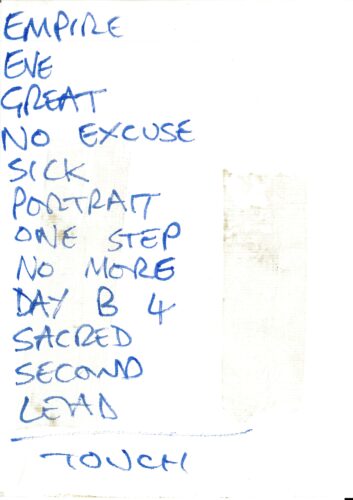 EMPIRE
EVE
GREAT
NO EXCUSE
SICK
PORTRAIT
ONE STEP
NO MORE
DAY B 4
SACRED
SECOND
LEAD
TOUCH